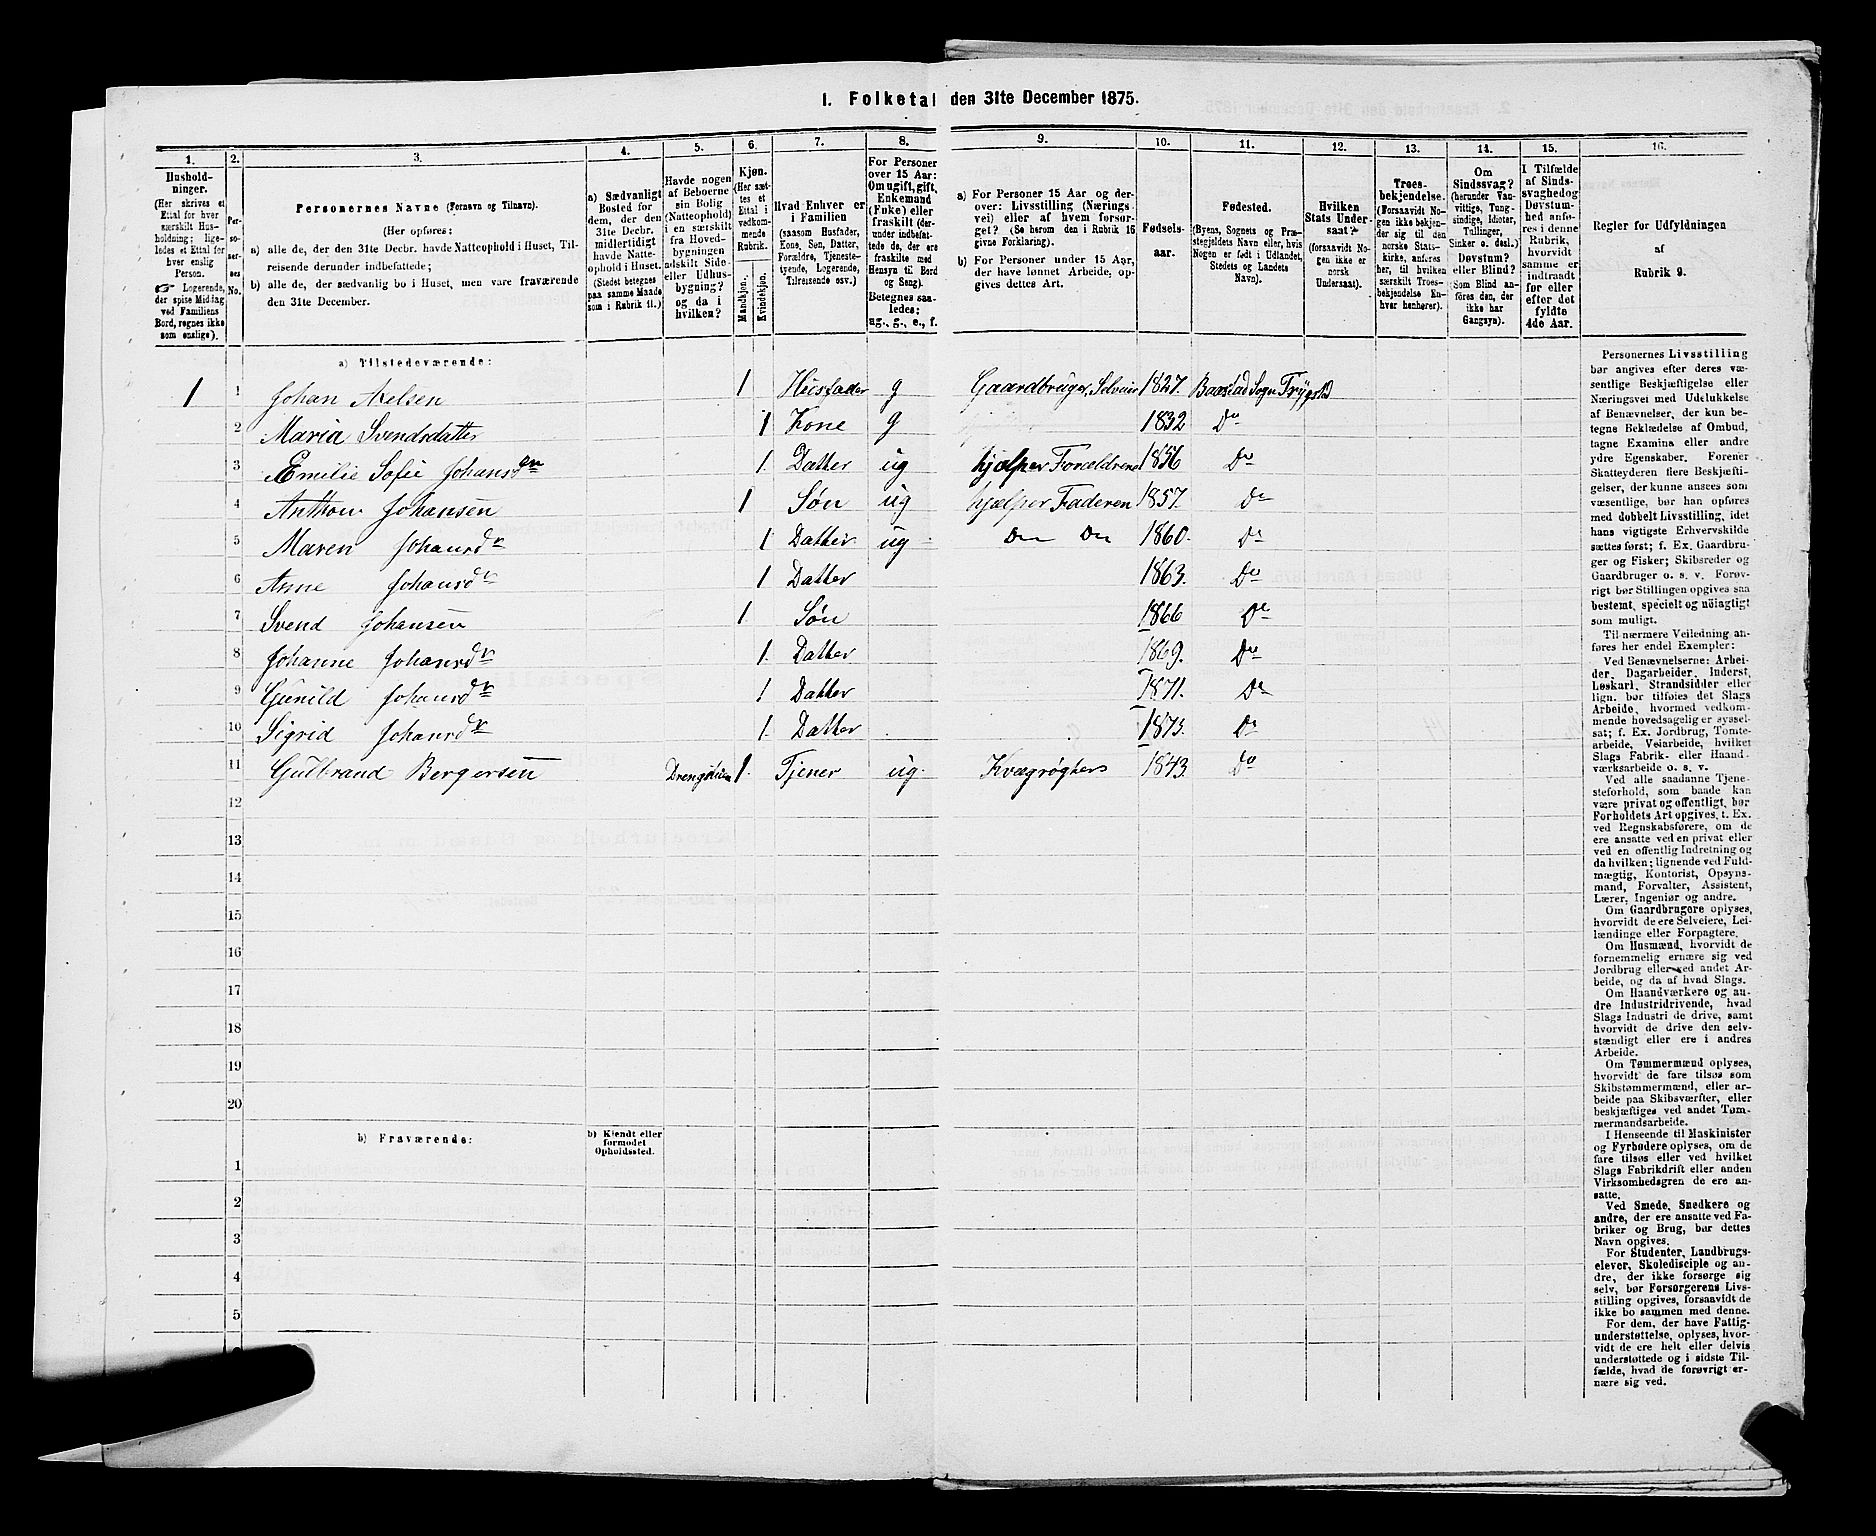 1. Folketal den 31te December 1875.
1. 2. 3. 4. 5. 6. 7. 8. 9. 10. 11. 12. 13. 14. 15. 16.
Hushold-
ninger.
(Her skrives et
Ettal for hver
særskilt Hus-
holdning; lige-
ledes et Ettal for
hver enslig
Person.
☞ Logerende,
der spise Middag
ved Familiens
Bord, regnes ikke
som enslige).
Per-
so-
ner-
nes
No.
Personernes Navne (Fornavn og Tilnavn).
(Her opføres:
a) alle de, der den 31te Decbr. havde Natteophold i Huset, Til-
reisende derunder indbefattede;
b) alle de, der sædvanlig bo i Huset, men vare fraværende
den 31te December.
a) Sædvanligt
Bosted for
dem, der den
31te Decbr.
midlertidigt
havde Natte-
ophold i Huset.
(Stedet betegnes
paa samme Maade
som i Rubrik 11.)
Havde nogen
af Beboerne
sin Bolig
(Natteophold)
i en særskilt
fra Hoved-
bygningen
adskilt Side-
eller Udhus-
bygning?
og da i
hvilken?
Kjøn.
(Her sæt-
tes et
Ettal i
vedkom-
mende
Rubrik.
Mandkjøn.
Kvindekjøn.
Hvad Enhver er
i Familien
(saasom Husfader,
Kone, Søn, Datter,
Forældre, Tjeneste-
tyende, Logerende,
Tilreisende osv.)
For Personer
over 15 Aar:
Om ugift, gift,
Enkemand
(Enke) eller
fraskilt (der-
under indbefat-
tede de, der ere
fraskilte med
Hensyn til Bord
og Seng).
Betegnes saa-
ledes:
ug., g., e., f.
a) For Personer 15 Aar og der-
over: Livsstilling (Nærings-
vei) eller af hvem forsør-
get? (Se herom den i Rubrik 16
givne Forklaring).
b) For Personer under 15 Aar,
der have lønnet Arbeide, op-
gives dettes Art.
Fødsels-
aar.
Fødested.
(Byens, Sognets og Præ-
stegjeldets Navn eller, hvis
Nogen er født i Udlandet,
Stedets og Landets
Navn).
Hvilken
Stats Under-
saat?
(forsaavidt No-
gen ikke er
norsk
Undersaat).
Troes-
bekjendelse.
(Forsaavidt No-
gen ikke bekjen-
der sig til den
norske Stats-
kirke, anføres
her, til hvilken
særskilt Troes-
bekjendelse En-
hver henhører).
Om
Sindssvag?
(herunder Van-
vittige, Tung-
sindige, Idioter,
Tullinger,
Sinker o. desl.)
Døvstum?
eller Blind?
(Som Blind an-
føres den, der
ikke har
Gangsyn).
I Tilfælde
af Sinds-
svaghed og
Døvstum-
hed anfø-
res i denne
Rubrik,
hvorvidt
samme er
indtraadt
før eller
efter det
fyldte
4de Aar.
Regler for Udfyldningen
af
Rubrik 9.
a) Tilstedeværende:
1 1 Johan Axelsen 1 Husfader g Gaardbruger, Selveier 1827. Baastad Sogn Trygstd
2 Maria Svendsdatter 1 Kone g 1832 Do
3 Emilie Sofie Johansdtr 1. Datter ug hjælper Forældrene 1856 Do
4 Antthon Johansen 1 Søn ug hjælper Faderen 1857. Do
5 Maren Johansdtr 1 Datter ug Do Do 1860. Do
6 Anne Johansdtr 1 Datter 1863. Do
7 Svend Johansen 1 Søn 1866 Do
8 Johanne Johansdtr 1. Datter 1869. Do
9 Gunild Johansdtr 1 Datter 1871. Do
10 Sigrid Johansdtr 1. Datter 1873. Do
11 Gulbrand Bergersen 1. Tjener ug. Kvægrøgter 1843. Do
12
13
14
15
16
17
18
19
20
b) Fraværende:
b) Kjendt eller
formodet
Opholdssted.
1
2
3
4
5
Personernes Livsstilling
bør angives efter deres væ-
sentlige Beskjæftigelse eller
Næringsvei med Udelukkelse
af Benævnelser, der kun be-
tegne Beklædelse af Ombud,
tagne Examina eller andre
ydre Egenskaber. Forener
Skatteyderen flere Beskjæfti-
gelser, der kunne ansees som
væsentlige, bør han opføres
med dobbelt Livsstilling, idet
hans vigtigste Erhvervskilde
sættes først; f. Ex. Gaardbru-
ger og Fisker; Skibsreder og
Gaardbruger o. s. v. Forøv-
rigt bør Stillingen opgives saa
bestemt, specielt og nöiagtigt
som muligt.
Til nærmere Veiledning an-
føres her endel Exempler:
Ved Benævnelserne: Arbei-
der, Dagarbeider, Inderst,
Løskarl, Strandsidder eller
lign. bør tilføies det Slags
Arbeide, hvormed vedkom-
mende hovedsagelig er syssel-
sat; f. Ex. Jordbrug, Tomte-
arbeide, Veiarbeide, hvilket
Slags Fabrik- eller Haand-
værksarbeide o. s. v.
Ved alle saadanne Tjene-
steforhold, som baade kan
være privat og offentligt, bør
Forholdets Art opgives, t. Ex.
ved Regnskabsførere, om de
ere ansatte ved en privat eller
ved en offentlig Indretning og
da hvilken; lignende ved Fuld-
mægtig, Kontorist, Opsyns-
mand, Forvalter, Assistent,
Lærer, Ingeniør og andre.
Om Gaardbrugere oplyses,
hvorvidt de ere Selveiere, Lei-
lændinge eller Forpagtere.
Om Husmænd, hvorvidt de
fornemmelig ernære sig ved
Jordbrug eller ved andet Ar-
beide, og da af hvad Slags.
Om Haandværkere og an-
dre Industridrivende, hvad
Slags Industri de drive, samt
hvorvidt de drive den selv-
stændigt eller ere i andres
Arbeide.
Om Tømmermænd oplyses,
hvorvidt de fare tilsøs som
Skibstømmermænd, eller ar-
beide paa Skibsværfter, eller
beskjæftiges ved andet Tøm-
mermandsarbeide.
I Henseende til Maskinister
og Fyrbødere oplyses, om de
fare tilsøs eller ved hvilket
Slags Fabrikdrift eller anden
Virksomhedsgren de ere an-
satte.
Ved Smede, Snedkere og
andre, der ere ansatte ved Fa-
briker og Brug, bør dettes
Navn opgives.
For Studenter, Landbrugs-
elever, Skoledisciple og an-
dre, der ikke forsørge sig
selv, bør Forsørgerens Livs-
stilling opgives, forsaavidt de
ikke bo sammen med denne.
For dem, der have Fattig-
understøttelse, oplyses, hvor-
vidt de ere helt eller delvis
understøttede og i sidste Til-
fælde, hvad de forøvrigt er-
nære sig ved.